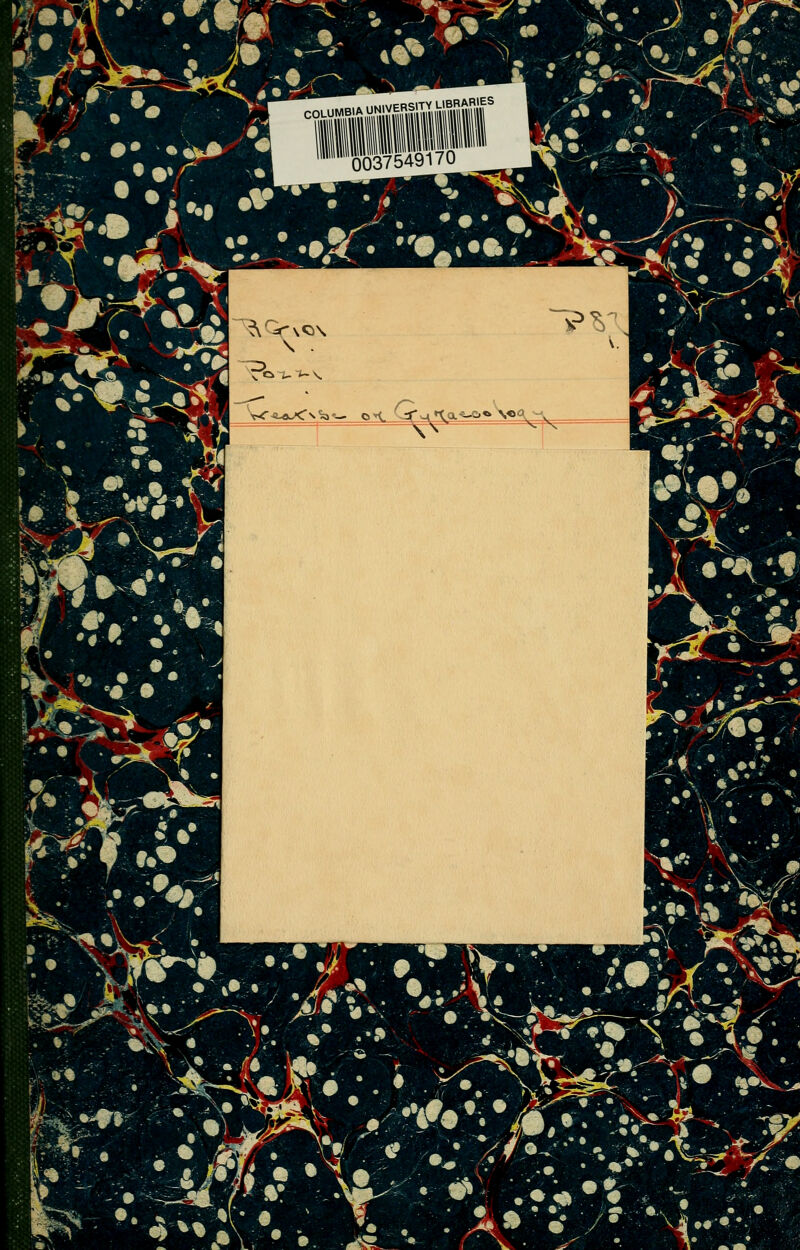 COLUMBIA UNIVERSITY LIBRARIES
0037549170
RG101 P87
Pozzi
Treatise on Gynaecology